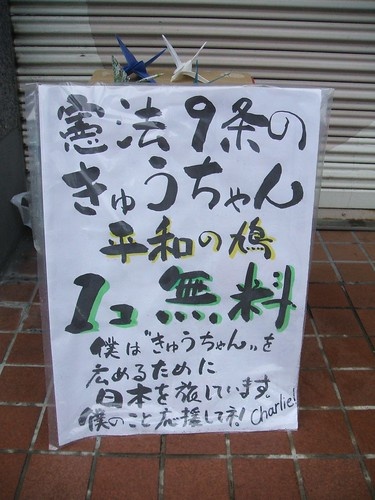 憲法9条の
きゅうちゃん
平和の鳩
1コ無料
僕は"きゅうちゃん"を
広めるために
日本を旅しています。
僕のこと応援してネ! Charlie!